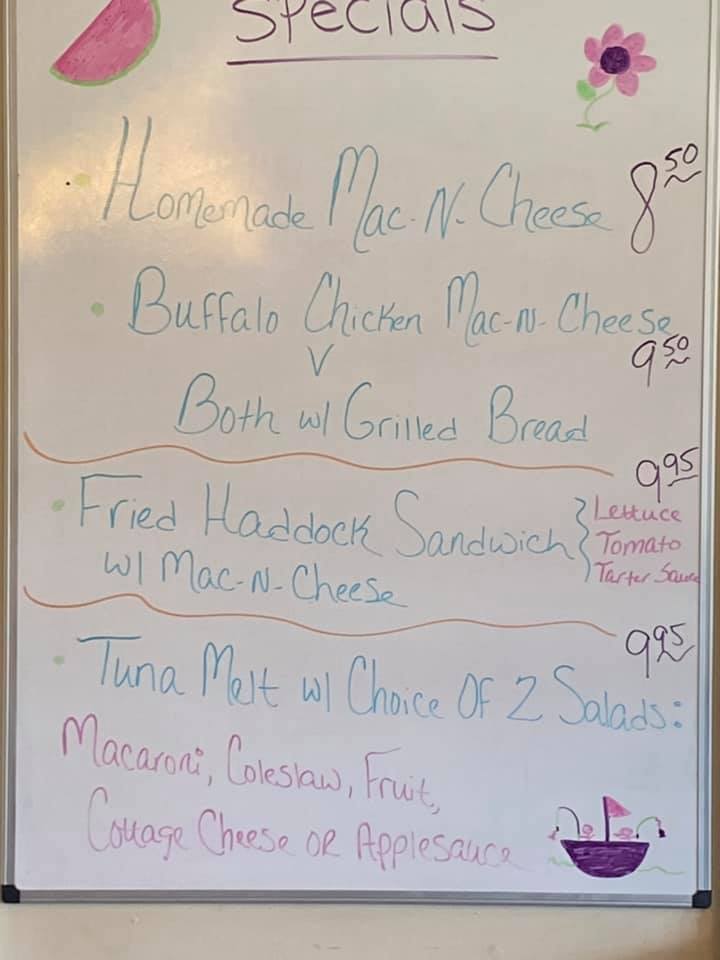 Specials
Homemade Mac-N-Cheese 8.50
Buffalo Chicken Mac-N-Cheese
9.50
Both w/ Grilled Bread
9.95
Fried Haddock Sandwich } Lettuce
Tomato
Tarter Sauce
w/ Mac-N-Cheese
9.95
Tuna Melt w/ Choice Of 2 Salads:
Macaroni, Coleslaw, Fruit,
Cottage Cheese OR Applesauce